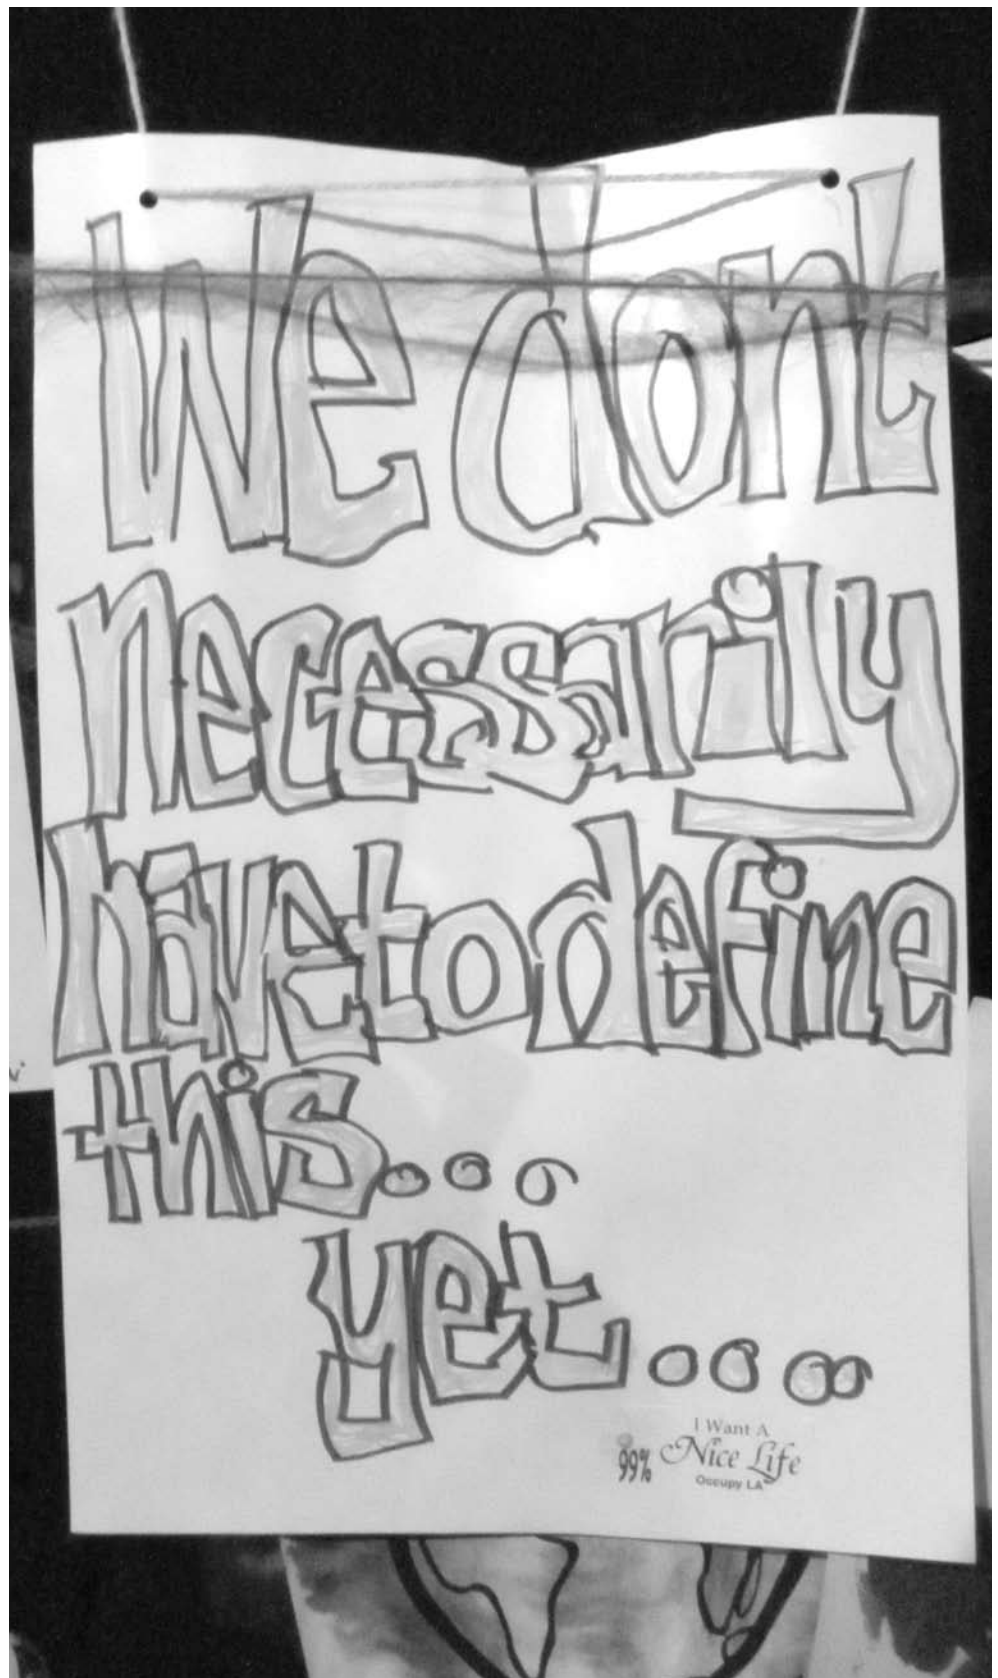 We dont
necessarily
have to define
this...
yet....
I Want A
99% Nice Life
Occupy LA